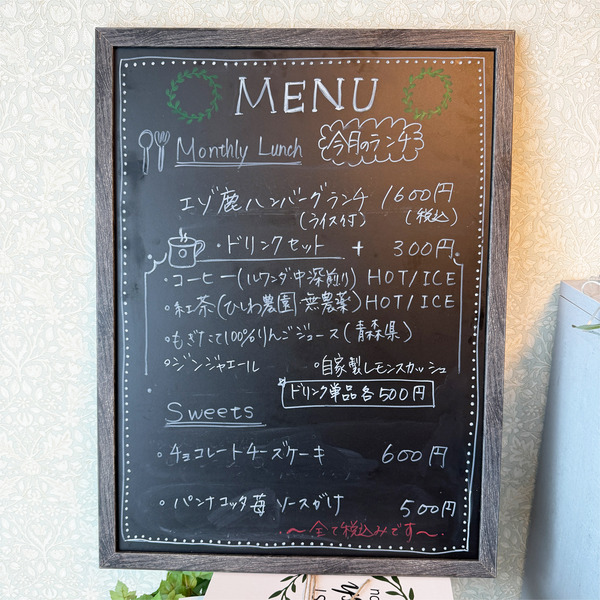 MENU
Monthly Lunch 今月のランチ
エゾ鹿ハンバーグランチ 1600円
(ライス付) (税込)
・ドリンクセット + 300円
・コーヒー(ルワンダ・中深煎り) HOT/ICE
・紅茶(ひしわ農園 無農薬) HOT/ICE
・もぎたて100%りんごジュース(青森県)
・ジンジャエール ・自家製レモンスカッシュ
ドリンク単品各500円
Sweets
・チョコレートチーズケーキ 600円
・パンナコッタ苺ソースがけ 500円
〜全て税込みです〜